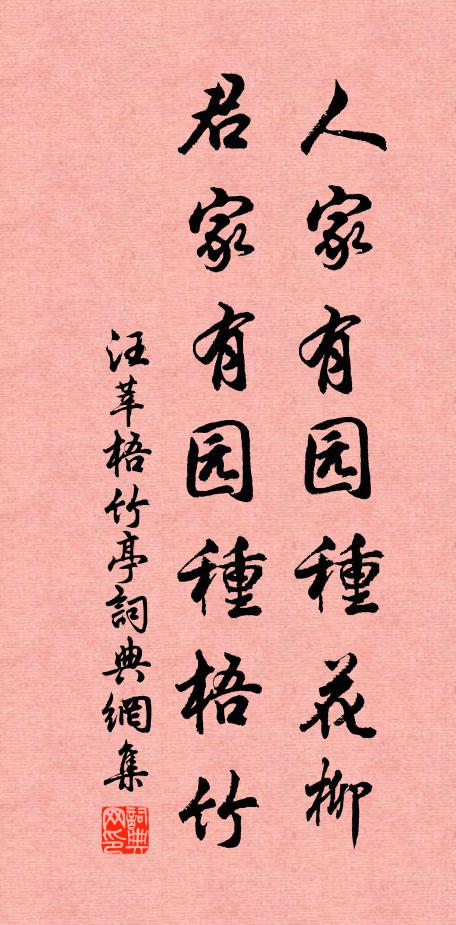 人家有园種花柳
君家有园種梧竹
汪莘梧竹亭詞典網集
詞典网印